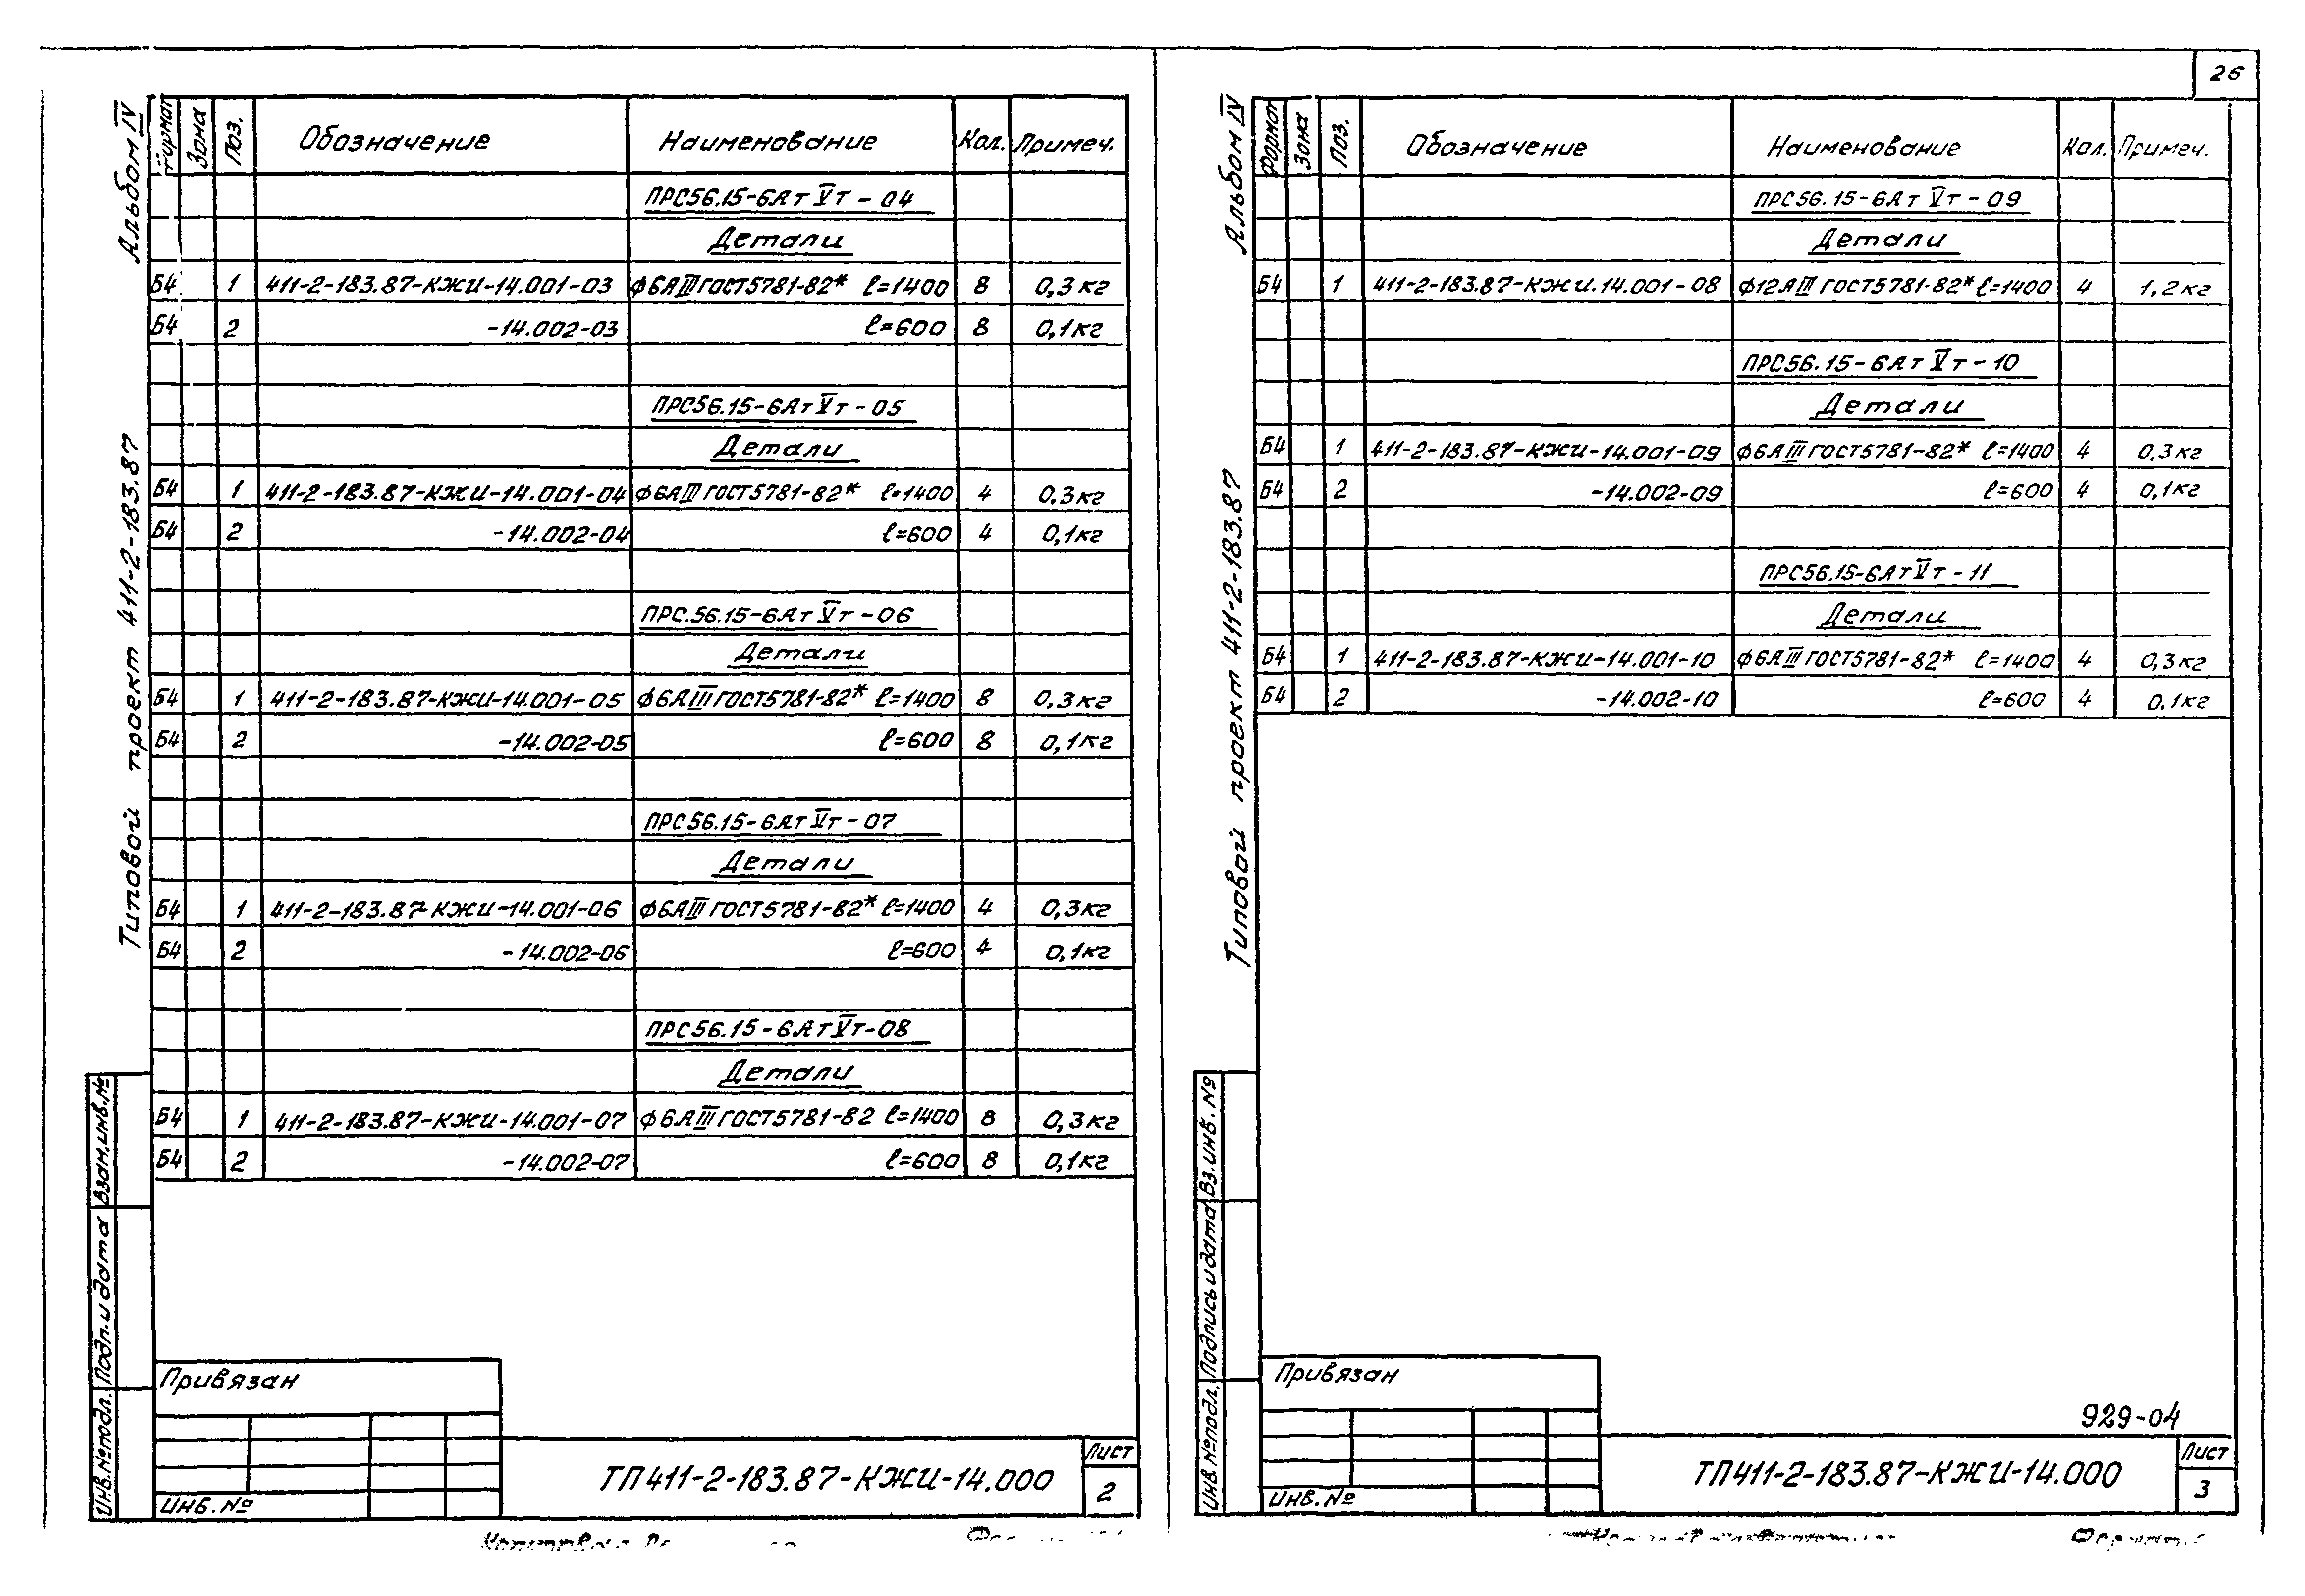 26
Альбом IV
Типовой проект 411-2-183.87
Формат Зона Поз. Обозначение Наименование Кол. Примеч.
ПРС56.15-6АтVт-04
Детали
Б4 1 411-2-183.87-КЖИ-14.001-03 ф6АIII ГОСТ5781-82* ℓ=1400 8 0,3кг
Б4 2 -14.002-03 ℓ=600 8 0,1кг
ПРС56.15-6АтVт-05
Детали
Б4 1 411-2-183.87-КЖИ-14.001-04 ф6АIII ГОСТ5781-82* ℓ=1400 4 0,3кг
Б4 2 -14.002-04 ℓ=600 4 0,1кг
ПРС.56.15-6АтVт-06
Детали
Б4 1 411-2-183.87-КЖИ-14.001-05 ф6АIII ГОСТ5781-82* ℓ=1400 8 0,3кг
Б4 2 -14.002-05 ℓ=600 8 0,1кг
ПРС56.15-6АтVт-07
Детали
Б4 1 411-2-183.87-КЖИ-14.001-06 ф6АIII ГОСТ5781-82* ℓ=1400 4 0,3кг
Б4 2 -14.002-06 ℓ=600 4 0,1кг
ПРС56.15-6АтVт-08
Детали
Б4 1 411-2-183.87-КЖИ-14.001-07 ф6АIII ГОСТ5781-82 ℓ=1400 8 0,3кг
Б4 2 -14.002-07 ℓ=600 8 0,1кг
Взам.инв.№
Подп. и дата
Инв.№подл.
Привязан
Инв.№
ТП411-2-183.87-КЖИ-14.000
Лист
2
Альбом IV
Типовой проект 411-2-183.87
Формат Зона Поз. Обозначение Наименование Кол. Примеч.
ПРС56.15-6АтVт-09
Детали
Б4 1 411-2-183.87-КЖИ.14.001-08 ф12АIII ГОСТ5781-82* ℓ=1400 4 1,2кг
ПРС56.15-6АтVт-10
Детали
Б4 1 411-2-183.87-КЖИ-14.001-09 ф6АIII ГОСТ5781-82* ℓ=1400 4 0,3кг
Б4 2 -14.002-09 ℓ=600 4 0,1кг
ПРС56.15-6АтVт-11
Детали
Б4 1 411-2-183.87-КЖИ-14.001-10 ф6АIII ГОСТ5781-82* ℓ=1400 4 0,3кг
Б4 2 -14.002-10 ℓ=600 4 0,1кг
Вз.инв.№
Подпись и дата
Инв.№подл.
Привязан
Инв.№
929-04
ТП411-2-183.87-КЖИ-14.000
Лист
3